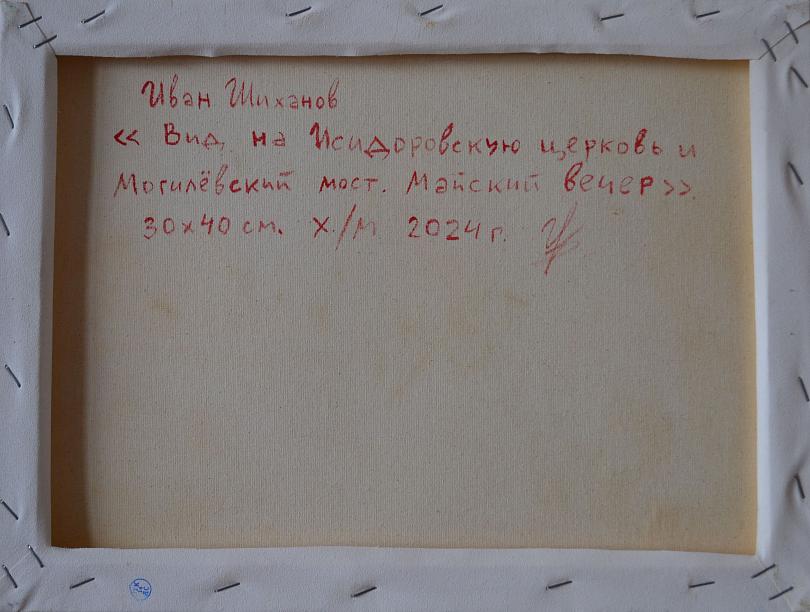 Иван Шиханов
« Вид на Исидоровскую церковь и
Могилёвский мост. Майский вечер»
30х40 см. Х/М 2024 г.